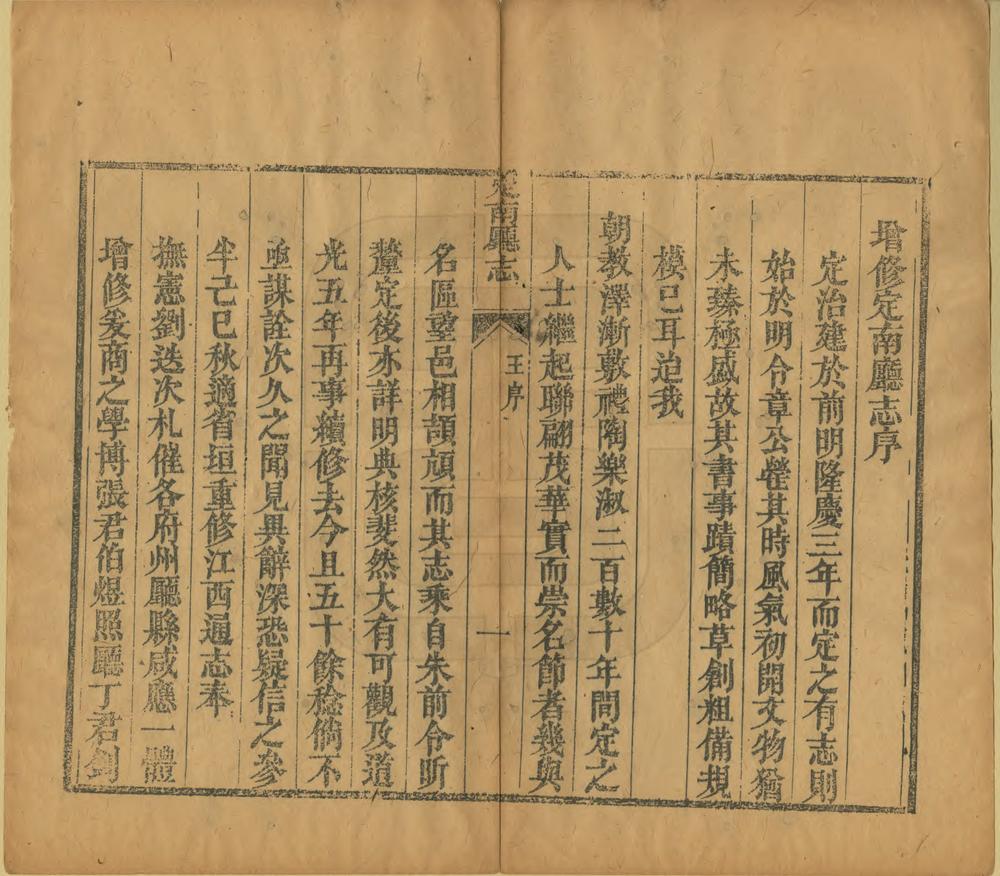 增修定南廳志序
定治建於前明隆慶三年而定之有志則
始於明令章公瑩其時風氣初開文物猶
未臻極盛故其書事蹟簡略草創粗備規
模已耳迨我
朝教澤漸敷禮陶樂淑二百數十年間定之
人士繼起聯翩茂華實而崇名節者幾與
定南廳志
王序
一
名區望邑相頡頏而其志乘自朱前令昕
釐定後亦詳明典核斐然大有可觀及道
光五年再事續修去今且五十餘稔倘不
亟謀詮次久之聞見異辭深恐疑信之參
半己巳秋適省垣重修江西通志奉
撫憲劉迭次札催各府州廳縣咸應一體
增修爰商之學博張君伯煜照廳丁君劍